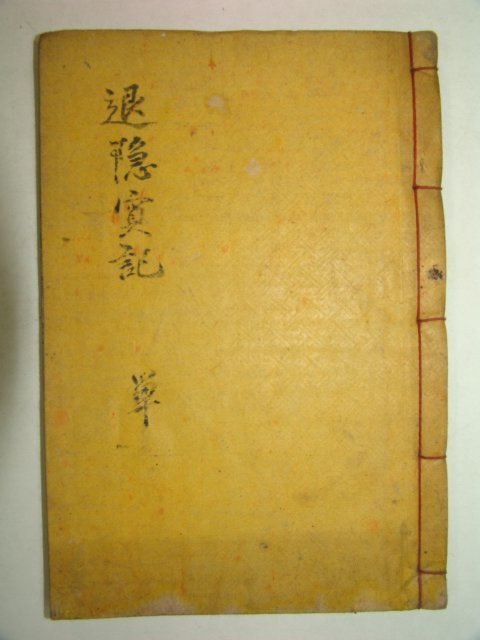 退隐實記
單